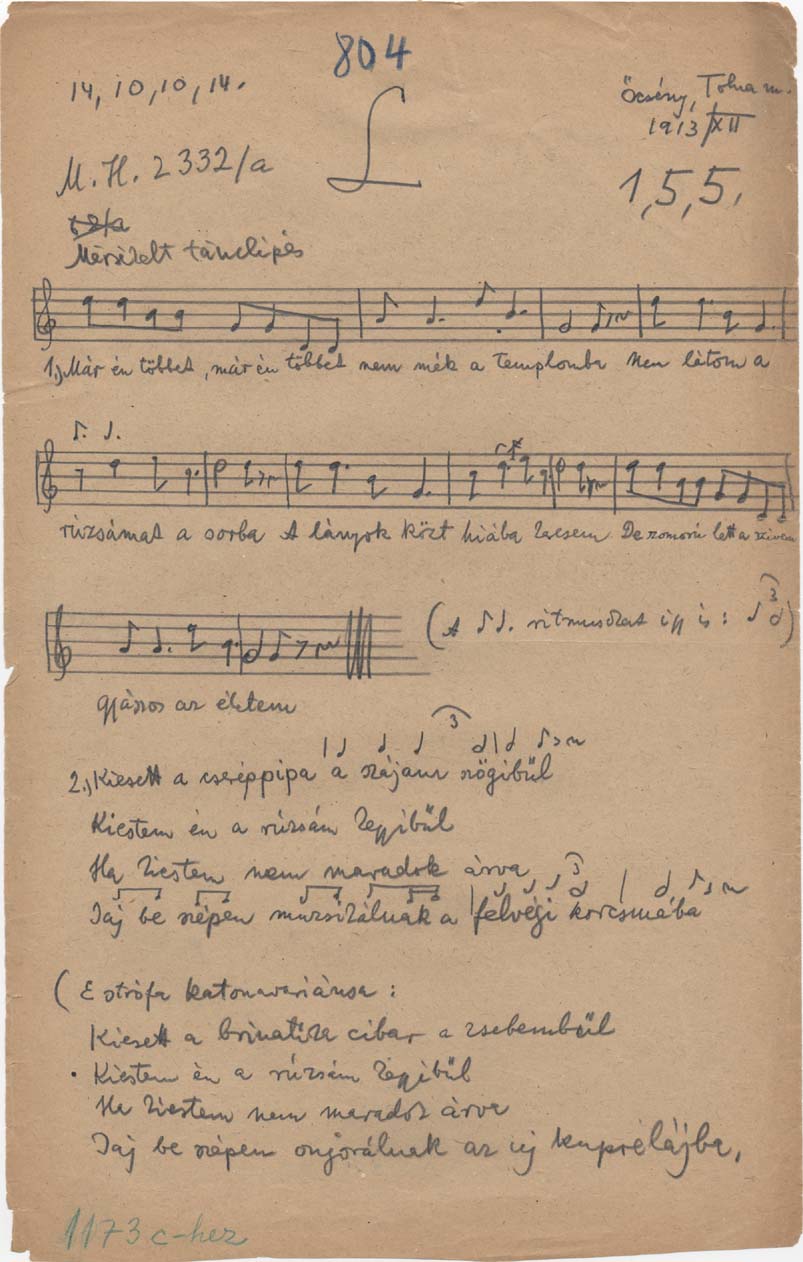 804
14, 10, 10, 14.
Őcsény, Tolna m.
1913 XII
L
M. H. 2332/a
1, 5, 5,
Mérsékelt tánclépés
1.) Már én többet, már én többet nem mék a templomba Nem látom a
rúzsámat a sorba A lányok közt hiába kesem De zomorú lett a szivem
gyászos az életem
(A ritmusokat így is: 3)
3
2.) Kiesett a cseréppipa a szájam szögibül
Kiestem én a rúzsám kegyibül
Ha kiestem nem maradok árva
3
Jaj be szépen muzsikálnak a felvégi korcsmába
(E strófa katonavariánsa:
Kiesett a brinatika cibar a zsebembül
Kiestem én a rúzsám kegyibül
Ha kiestem nem maradok árva
Jaj be szépen onjorálnak az új kuprélájba,
1173 c-hez